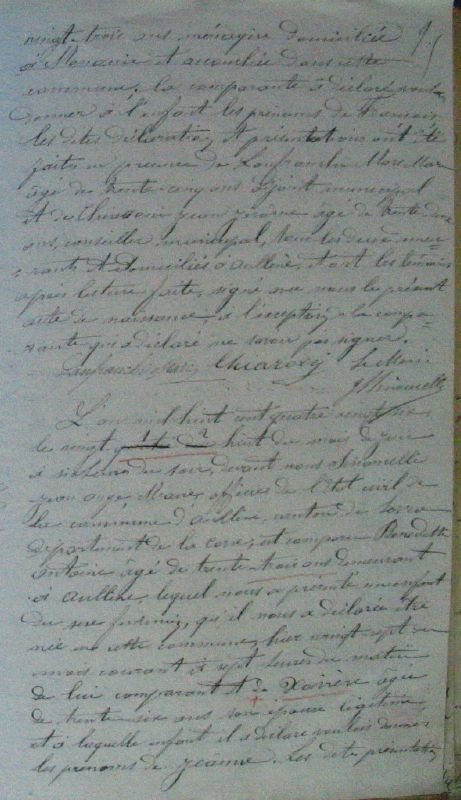 vingt-trois ans ménagère domiciliée
à et accouchée dans cette
commune. la comparante a déclaré vouloir
donner à l'enfant les prénoms de François
les dites déclaration et présentation ont été
faites en présence de Lanfranchi Marc Marie
âgé de trente-cinq ans adjoint municipal
et de jean âgé de trente-deux
ans, conseiller municipal, tous les deux
et domiciliés à aullène, et ont les témoins
après lecture faite, signé avec nous le présent
acte de naissance, à l'exception de la compa-
rante qui a déclaré ne savoir pas signer.
Lanfranchi Marc Le Maire
L'an mil huit cent quatre vingt six
le vingt huit du mois de juin
à six heures du soir, devant nous Simonelli
jean ange Maire, officier de l'état civil de
la commune d'aullène, canton de Serra
département de la corse, est comparu Benedetti
antoine âgé de trente-trois ans demeurant
à aullène, lequel nous a présenté un enfant
du sexe féminin, qu'il nous a déclaré être
née en cette commune, hier vingt sept du
mois courant à sept heures du matin
de lui comparant et de Xavière agée
de trente-six ans son épouse légitime,
et à laquelle enfant il a déclaré vouloir donner
les prénoms de jeanne. Les dites présentation